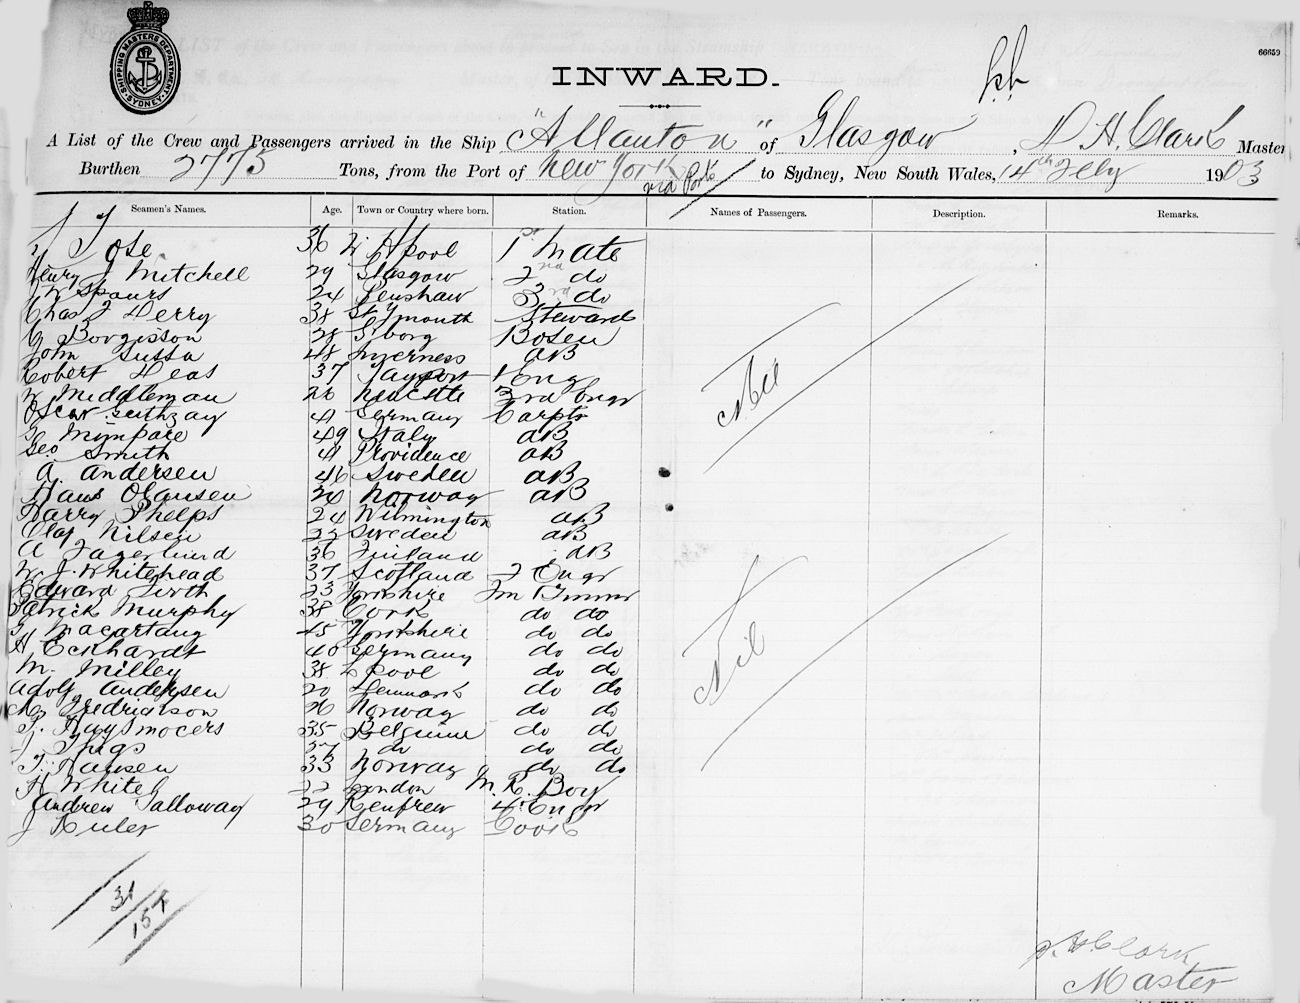 SHIPPING MASTERS DEPARTMENT SYDNEY
66659
INWARD.
A List of the Crew and Passengers arrived in the Ship "Allanton" of Glasgow, D H Clark Master
Burthen 2775 Tons, from the Port of New York via Ports to Sydney, New South Wales, 14th Feby 1903
Seamen's Names. Age. Town or Country where born. Station. Names of Passengers. Description. Remarks.
Jose 36 W Hpool 1st Mate
Henry J Mitchell 29 Glasgow 2nd do
J W Spours 24 Penshaw 3rd do
Chas J Herry 38 St Ymouth Steward
Borgisson 28 Bosen
John Sussa 48 Inverness AB
Robert Deas 37 Tayport 1 Eng
W Middleman 26 NewCstle 3rd Engr
Oscar 41 Germany Carptr
Mimpare 49 Italy AB
Geo Smith 41 Providence AB
A. Andersen 46 Sweden AB
Hans Olausen 20 Norway AB
Harry Phelps 24 Wilmington AB
Olaf Nilsen Sweden AB
A Fagerlund 36 Finland AB
W. J. Whitehead 37 Scotland 2 Engr
Edward Firth 23 Yorkshire
Patrick Murphy 38 Cork do do
Macartang 45 Yorkshire do do
H Eckhardt 40 Germany do do
M. Milley 38 L pool do do
Adolf Andersen 20 Denmark do do
Fredrickson 26 Norway do do
Huysmoers 35 Belgium do do
J Thigs 37 do do do
F. Hansen 33 Norway do do
H White 22 London M. R. Boy
Andrew Galloway 29 Renfrew 4 Engr
J Kuler 30 Germany Cook
Nil
Nil
31
154
D. H. Clark
Master